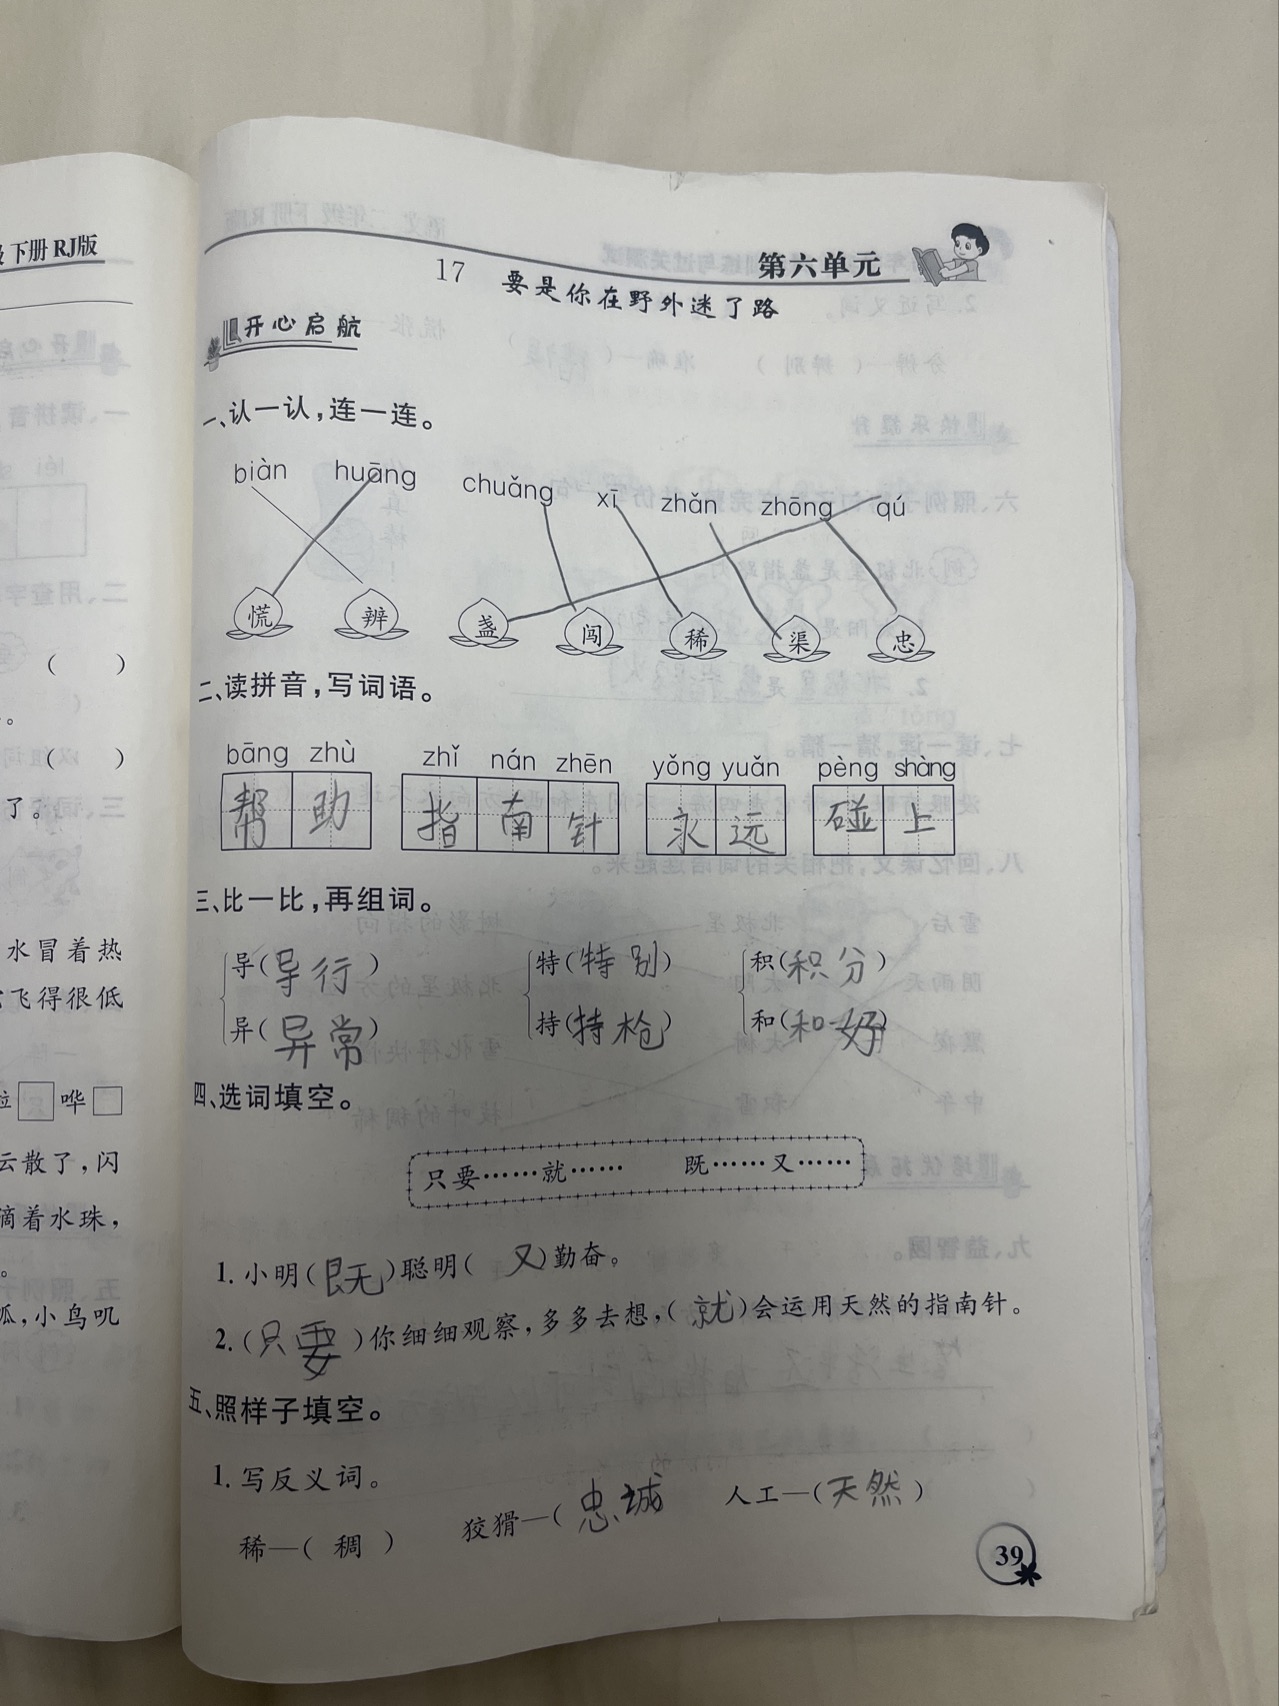 下册 RJ版
( )
( )
了。
水冒着热
飞得很低
哗
云散了，闪
滴着水珠，
小鸟叽
第六单元
17 要是你在野外迷了路
开心启航
一、认一认，连一连。
biàn huāng chuǎng xī zhǎn zhōng qú
慌 辨 盏 闯 稀 渠 忠
二、读拼音，写词语。
bāng zhù zhǐ nán zhēn yǒng yuǎn pèng shàng
帮助 指南针 永远 碰上
三、比一比，再组词。
导(导行) 特(特别) 积(积分)
异(异常) 持(持枪) 和(和好)
四、选词填空。
只要……就…… 既……又……
1. 小明(既)聪明(又)勤奋。
2. (只要)你细细观察，多多去想，(就)会运用天然的指南针。
五、照样子填空。
1. 写反义词。
稀—(稠) 狡猾—(忠诚 人工—(天然)
39